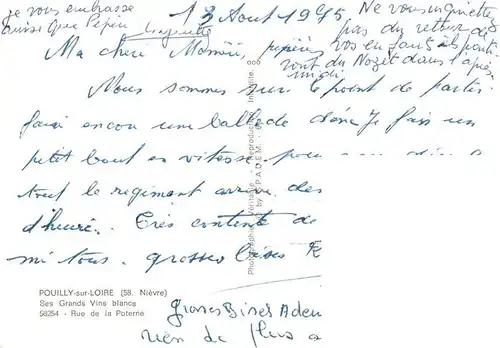 je vous embrasse
ainsi que Pépin
13 Aout 1975.
Ne vous inquiette
pas du rettour de
vos enfants ils parti
ront du Nozet dans l'après
midi
Ma cheri Mamén,
Nous sommes sur le point de partir
fair encor une ballade donc Je fais un
petit bout en vitesse pour
tout le regiment arrive des
d'heure. Très contente de
mi tous. grosses bises
grosses Bises Aden
rien de plus a
POUILLY-sur-LOIRE (58. Nièvre)
Ses Grands Vins blancs
58254 - Rue de la Poterne
Photographie véritable - Reproduction interdite.
by S.P.A.D.E.M.